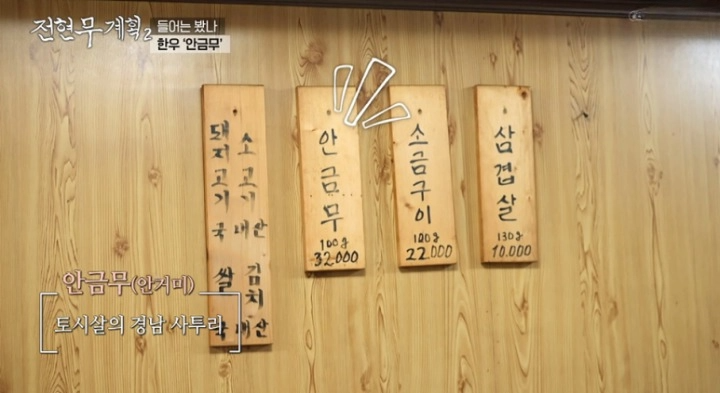 전현무계획2
들어는 봤나
한우 '안금무'
소고기 국내산 김치 국내산
돼지고기 국내산 쌀 국내산
안금무
100g
32.000
소금구이
100g
22.000
삼겹살
130g
10.000
안금무(안거미)
토시살의 경남 사투리